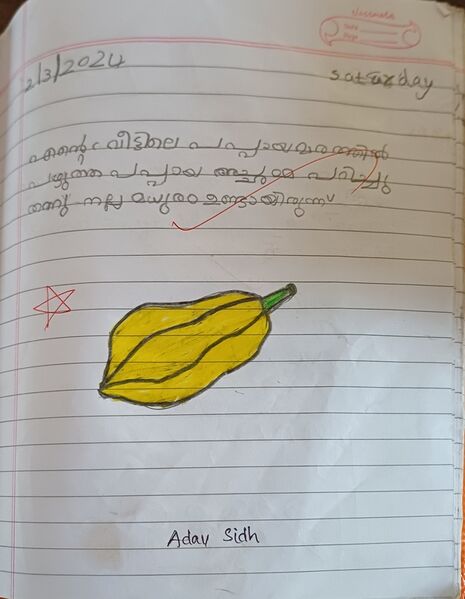 2/3/2024
saturday
എന്റെ വീട്ടിലെ പപ്പായമരത്തിൽ
പഴുത്ത പപ്പായ അച്ചമ്മ പറിച്ചു
തന്നു നല്ല മധുരം ഉണ്ടായിരുന്നു
Adav Sidh